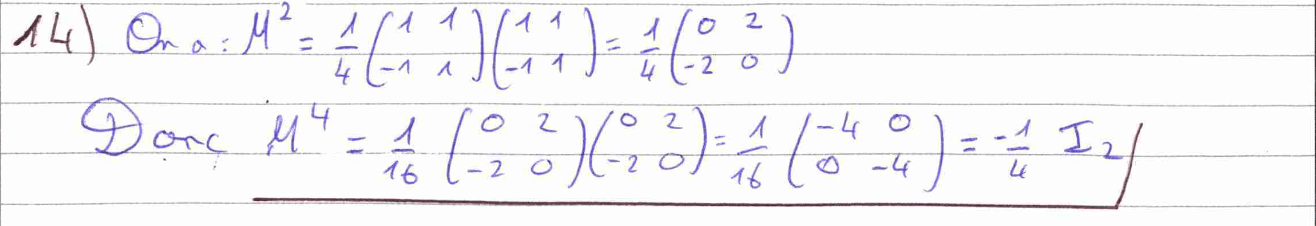 14) On a : M² = 1/4 (1 1 ; -1 1) (1 1 ; -1 1) = 1/4 (0 2 ; -2 0)
Donc M⁴ = 1/16 (0 2 ; -2 0) (0 2 ; -2 0) = 1/16 (-4 0 ; 0 -4) = -1/4 I₂